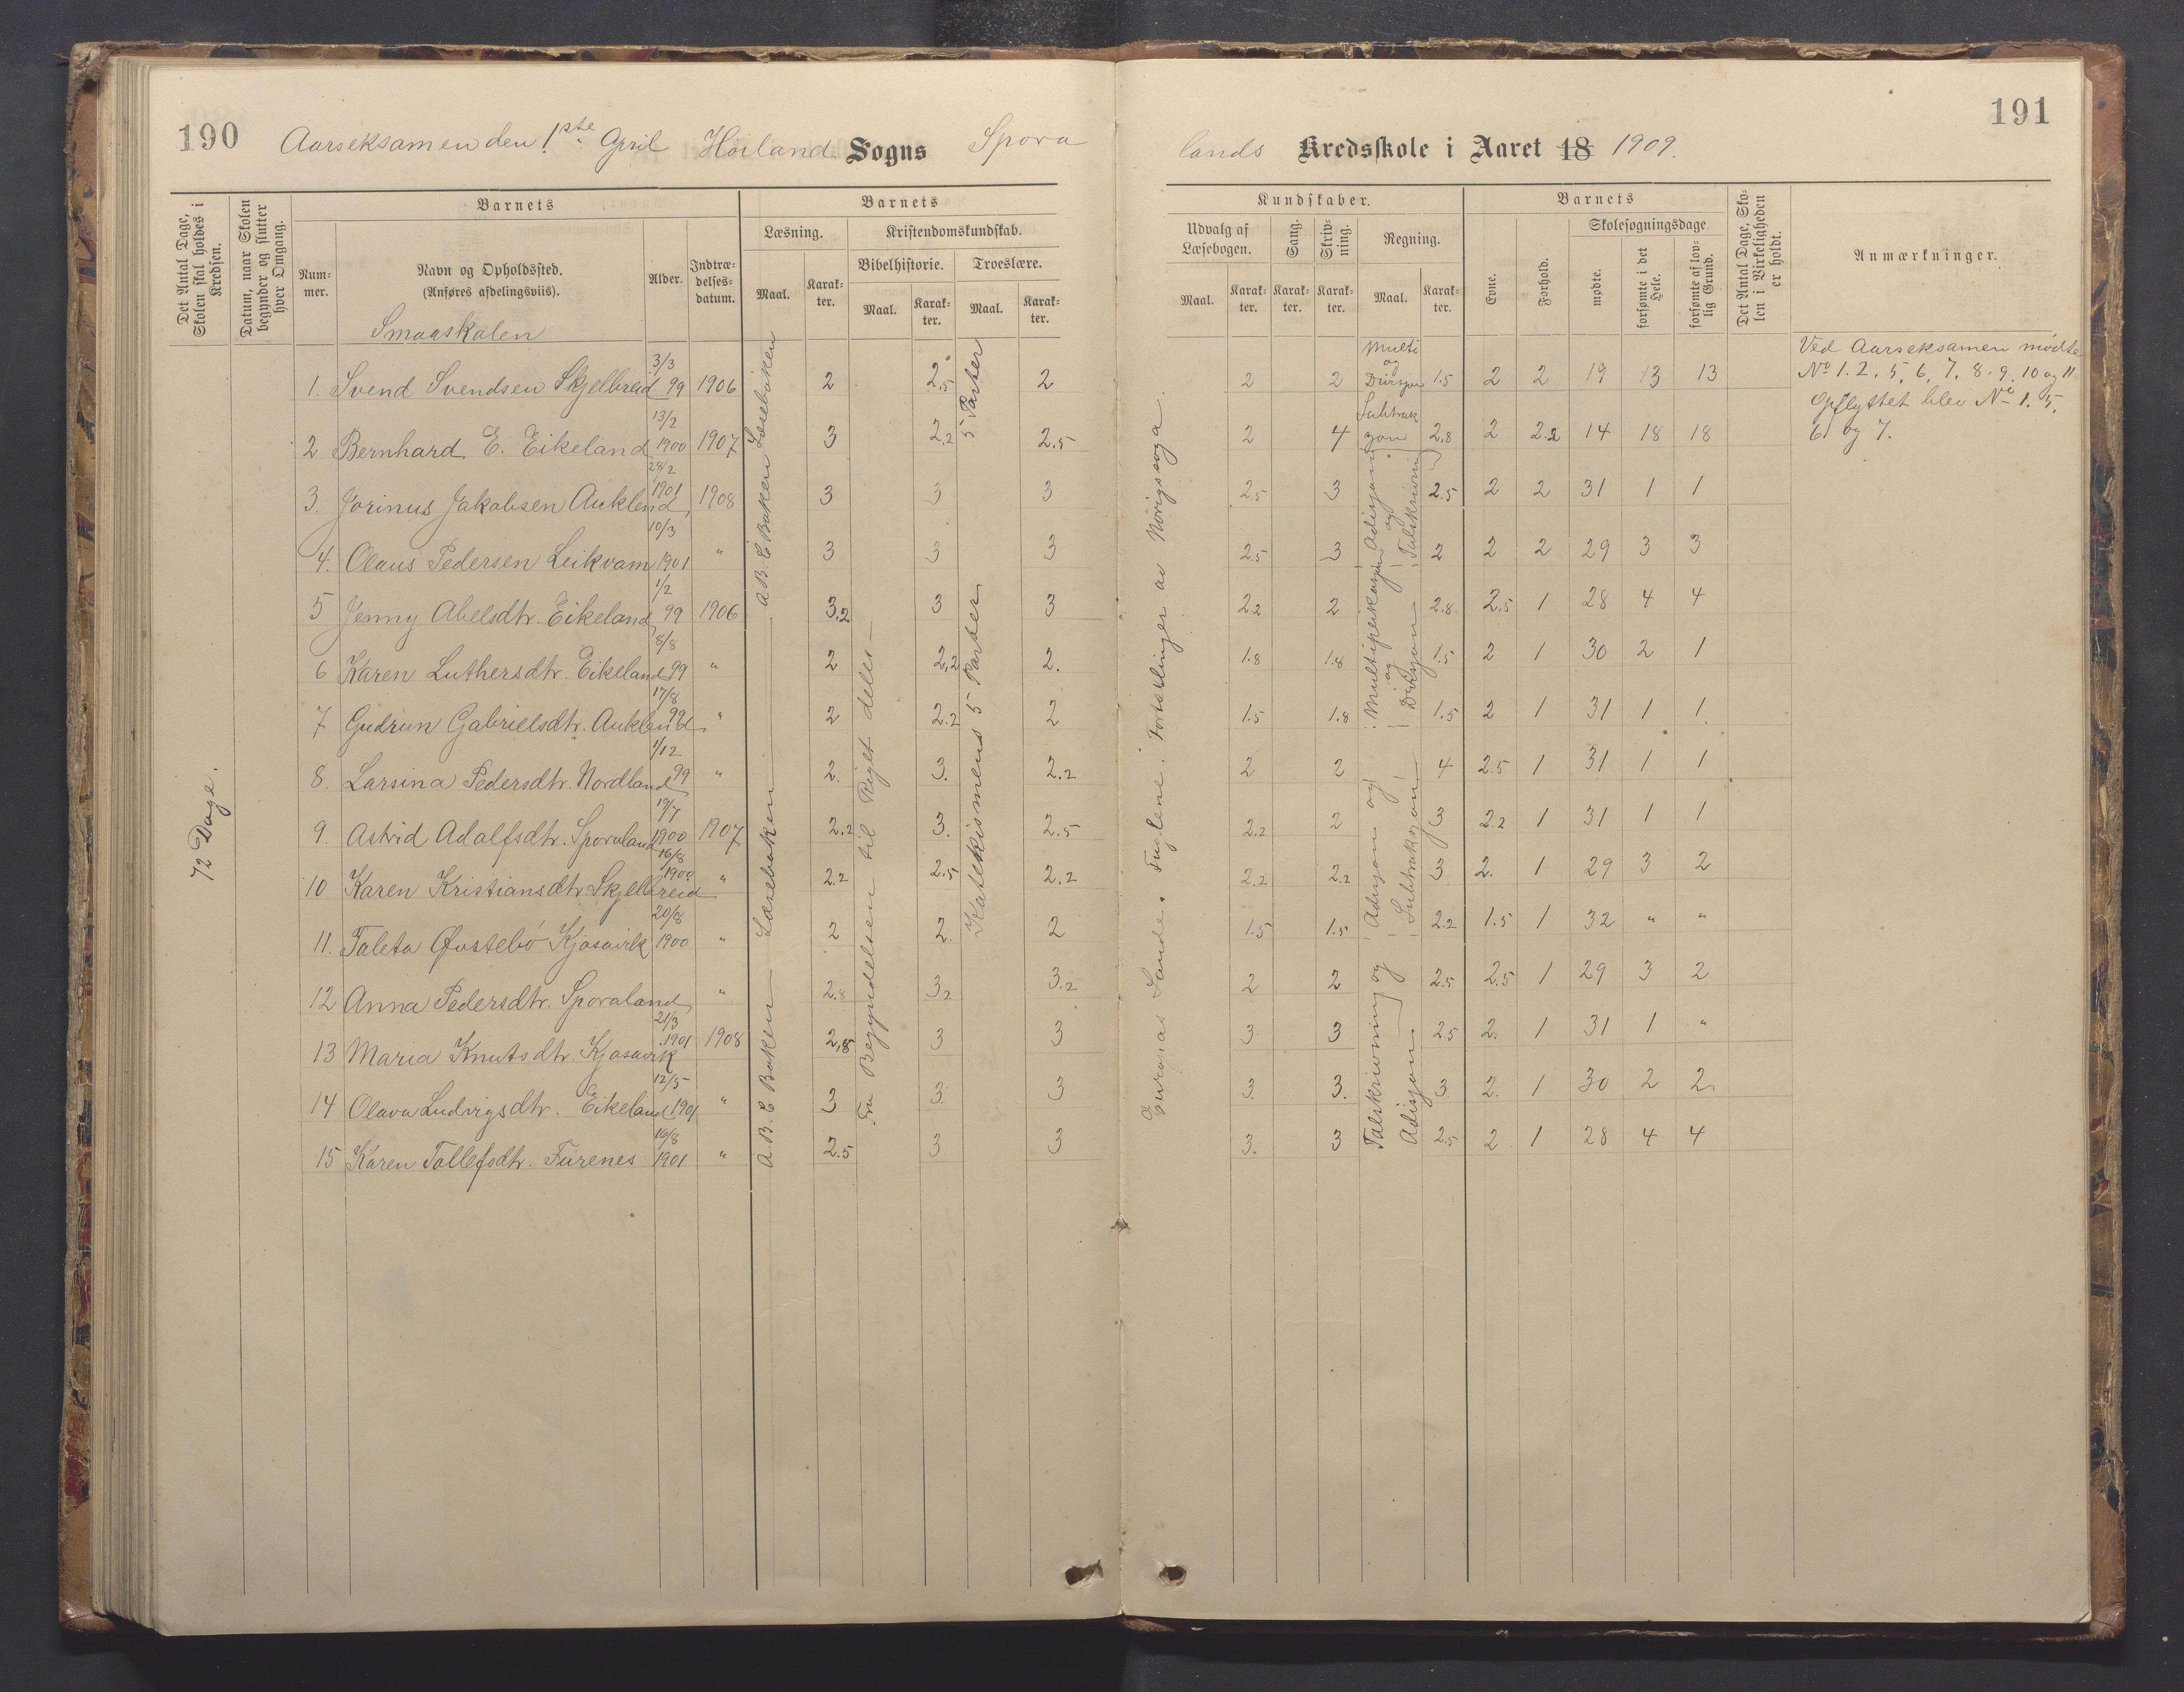 190
Aarseksamen den 1ste April Höiland Sogns Spora
lands Kredsskole i Aaret 18 1909.
191
Det Antal Dage, Skolen skal holdes i Kredsen.
Datum, naar Skolen begynder og slutter hver Omgang.
Barnets
Num-
mer.
Navn og Opholdssted.
(Anføres afdelingsviis).
Smaaskolen
Alder.
Indtræ-
delses-
datum.
Barnets
Læsning.
Maal.
Karak-
ter.
Kristendomskundskab.
Bibelhistorie.
Maal.
Karak-
ter.
Troeslære.
Maal.
Karak-
ter.
Kundskaber.
Udvalg af
Læsebogen.
Maal.
Karak-
ter.
Sang.
Karak-
ter.
Skriv-
ning.
Karak-
ter.
Regning.
Maal.
Karak-
ter.
Barnets
Evne.
Forhold.
Skolesøgningsdage
mødte.
forsømte i det Hele.
forsømte af lov-
lig Grund.
Det Antal Dage, Sko-
len i Virkeligheden er holdt.
Anmærkninger.
72 Dage.
1. Svend Svendsen Skjelbreid 3/3 99 1906 2 2.5 2 2 2 1.5 2 2 19 13 13
2 Bernhard E. Eikeland 13/2 1900 1907 3 2,2 2.5 2 4 2,8 2 2.2 14 18 18
3. Jorinus Jakobsen Auklend 28/2 1901 1908 3 3 3 2.5 3 2.5 2 2 31 1 1
4. Olaus Pedersen Leikvam 10/3 1901 " 3 3 3 2.5 3 2 2 2 29 3 3
5 Jenny Abelsdtr. Eikeland 1/2 99 1906 3,2 3 3 2.2 2 2.8 2,5 1 28 4 4
6 Karen Luthersdtr. Eikeland 8/8 99 " 2 2,2 2. 1.8 1.8 1.5 2 1 30 2 1
7 Gudrun Gabrielsdtr. Auklend 17/8 99 " 2 2.2 2 1.5 1.8 1.5 2 1 31 1 1
8. Larsina Pedersdtr. Nordland 1/12 99 " 2. 3. 2.2 2 2 4 2.5 1 31 1 1
9. Astrid Adolfsdtr. Sporaland 19/7 1900 1907 2.2 3. 2.5 2.2 2 3 2.2 1 31 1 1
10 Karen Kristiansdtr Skjelbreid 16/8 1900 " 2.2 2.5 2.2 2.2 2.2 3 2. 1 29 3 2
11. Taleta Øvstebö Kjosavik 20/8 1900 " 2 2. 2 1.5 1.5 2.2 1.5 1 32 " "
12 Anna Pedersdtr. Sporaland " 2.8 3.2 3.2 2 2 2.5 2.5 1 29 3 2
13 Maria Knutsdtr. Kjosavik 21/3 1901 1908 2,8 3 3 3 3 2.5 2. 1 31 1 "
14 Olava Ludvigsdtr. Eikeland 12/5 1901 " 3 3. 3 3. 3. 3 2. 1 30 2 2
15 Karen Tollefsdtr. Furenes 16/8 1901 " 2.5 3 3 3. 3 2.5 2 1 28 4 4
A.B.C Boken Læseboken
A.B.C Boken — Læseboken
Fra Begyndelsen til Rigets deles —
5 Parter
Katekismens 5 Parter
Europas Lande. Fuglene. Fortællinger av Norigssoga.
Multi
og
Divisjon
Subtrak
zon
Adisjon
og
Talskrivning
Multiperkasjon
og
Divisjon
Adisjon og
Subtraksjon
Talskrivning og
Adisjon
Ved Aarseksamen mødte
No 1. 2. 5. 6. 7. 8. 9. 10 og 11
Opflyttet blev No 1. 5.
6 og 7.